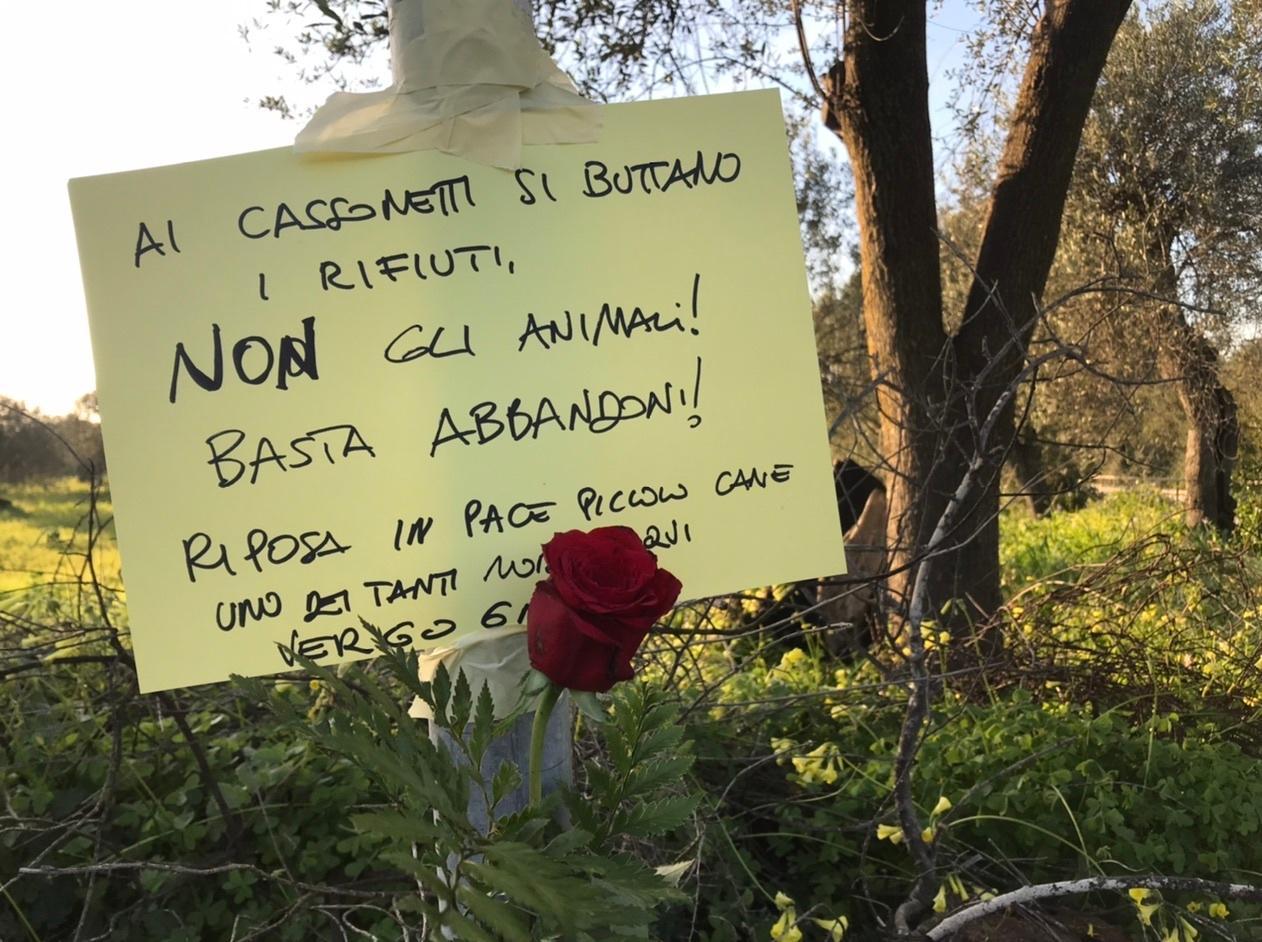 AI CASSONETTI SI BUTTANO
I RIFIUTI,
NON GLI ANIMALI!
BASTA ABBANDONI!
RIPOSA IN PACE PICCOLO CANE
UNO DEI TANTI QUI